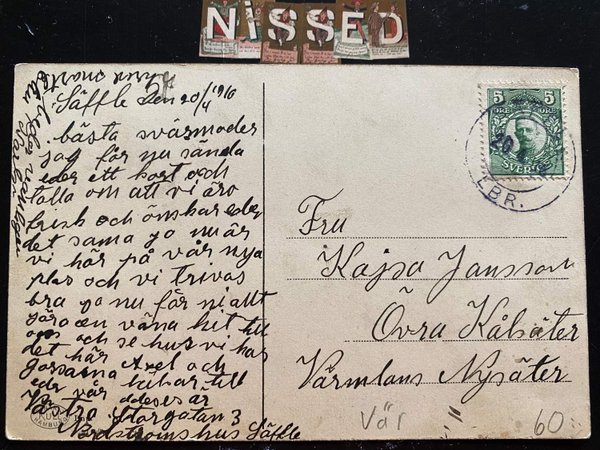 NiSSED
Säffle den 20/4 1916
bästa svärmoder
jag får nu sända
eder ett kort och
talla om att vi äro
frisk och önskar eder
det sama ja nu är
vi här på vår nya
plas och vi trivas
bra ja nu får ni allt
jöra en väna hit till
oss och se hur vi har
det här
Axel och
vår addres är
Västra Storgatan 3
Nordströms hus Säffle
5
ÖRE
5
ÖRE
SVERIGE
20
LBR.
Fru
Kajsa Jansson
Övra Kålsäter
Värmlans Nysäter
Vär
60